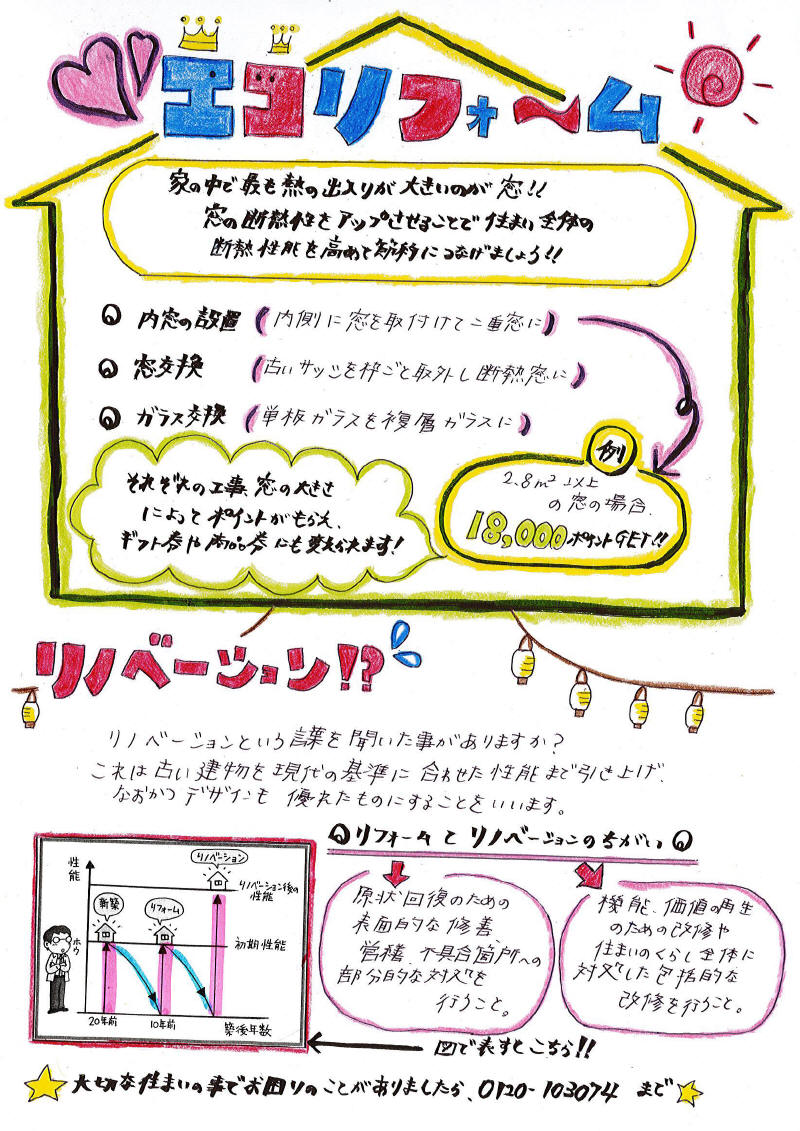 エコリフォ〜ム
家の中で最も熱の出入りが大きいのが窓!!
窓の断熱性をアップさせることで住まい全体の
断熱性能を高めて節約につなげましょう!!
内窓の設置 (内側に窓を取付けて二重窓に)
窓交換 (古いサッシを枠ごと取外し断熱窓に)
ガラス交換 (単板ガラスを複層ガラスに)
例
2.8m²以上
の窓の場合、
18,000ポイントGET!!
それぞれの工事、窓の大きさ
によってポイントがもらえ、
ギフト券や商品券にも変えられます!
リノベーション!?
リノベーションという言葉を聞いた事がありますか?
これは古い建物を現代の基準に合わせた性能まで引き上げ、
なおかつデザインも優れたものにすることをいいます。
リフォームとリノベーションのちがい
原状回復のための
表面的な修善
営繕、不具合箇所への
部分的な対処を
行うこと。
機能、価値の再生
のための改修や
住まいのくらし全体に
対処した包括的な
改修を行うこと。
性能
リノベーション
リノベーション後の
性能
新築
リフォーム
初期性能
ホウ
20年前
10年前
築後年数
図で表すとこちら!!
大切な住まいの事でお困りのことがありましたら、0120-103074 まで